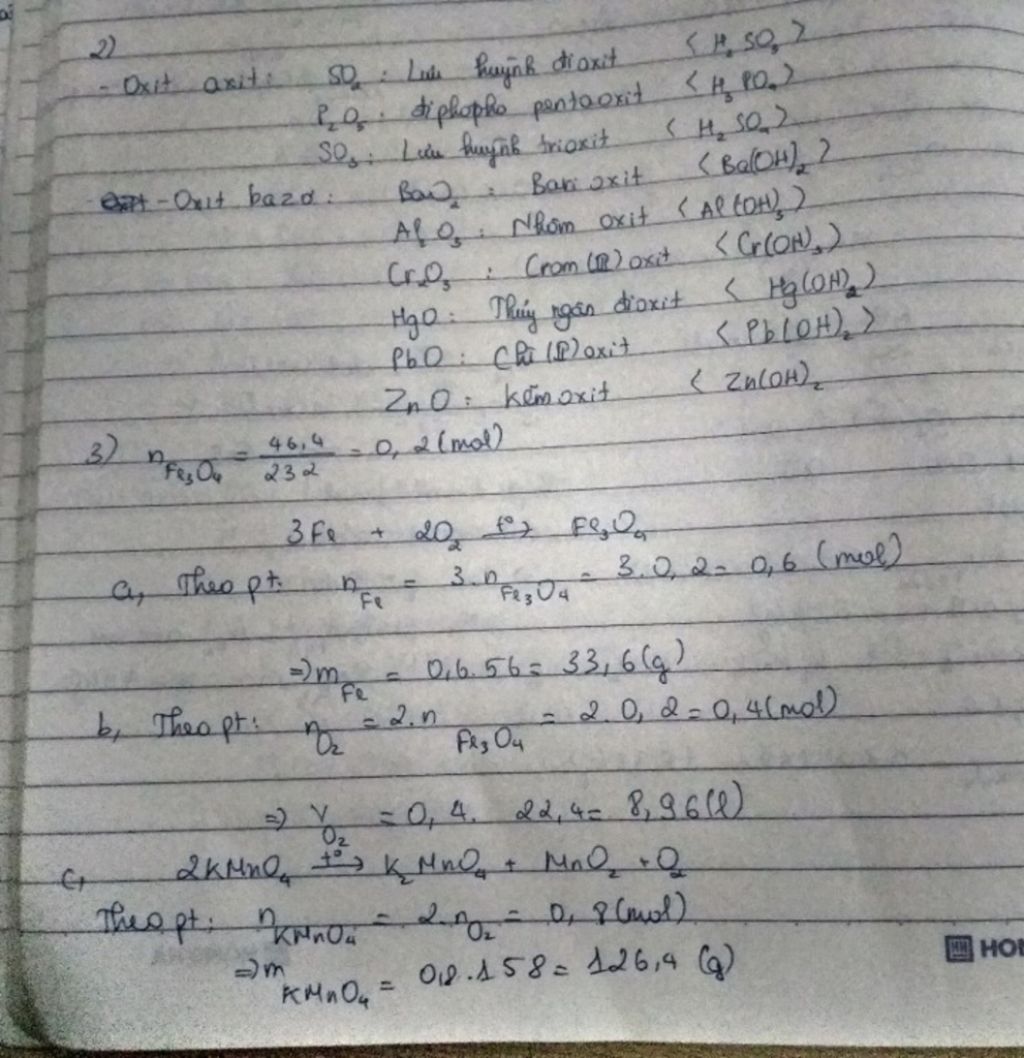 2)
- Oxit axit: SO₂ : Lưu huỳnh đioxit < H₂ SO₃ >
P₂O₅ : điphopho pentaoxit < H₃ PO₄ >
SO₃ : Lưu huỳnh trioxit < H₂ SO₄ >
- Oxit bazơ : BaO₂ : Bari oxit < Ba(OH)₂ >
Al₂O₃ : Nhôm oxit < Al(OH)₃ >
Cr₂O₃ : Crom (III) oxit < Cr(OH)₃ >
HgO : Thủy ngân đioxit < Hg(OH)₂ >
PbO : Chì (II) oxit < Pb(OH)₂ >
ZnO : kẽm oxit < Zn(OH)₂
3) n Fe₃O₄ = 46,4 / 232 = 0,2 (mol)
3Fe + 2O₂ t°→ Fe₃O₄
a, Theo pt: n Fe = 3.n Fe₃O₄ = 3.0,2 = 0,6 (mol)
=> m Fe = 0,6.56 = 33,6 (g)
b, Theo pt: n O₂ = 2.n Fe₃O₄ = 2.0,2 = 0,4 (mol)
=> V O₂ = 0,4. 22,4 = 8,96 (l)
c, 2KMnO₄ t°→ K₂MnO₄ + MnO₂ + O₂
Theo pt: n KMnO₄ = 2.n O₂ = 0,8 (mol)
=> m KMnO₄ = 0,8.158 = 126,4 (g)